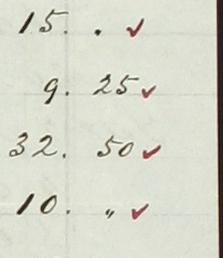 15. . ✓
9. 25 ✓
32. 50 ✓
10. " ✓